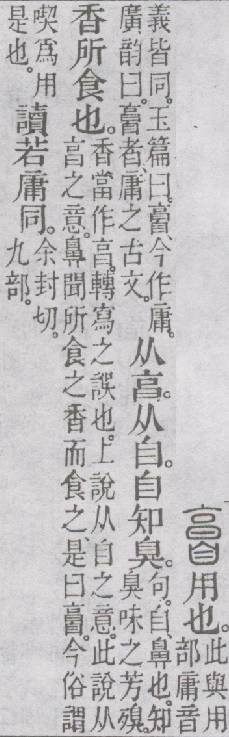 𦤘用也。此與用
部庸音
義皆同。玉篇曰。𦤘、今作庸。
廣韵曰。𦤘者、庸之古文。
从亯。从自。自知臭。句。自、鼻也。知
臭味之芳殠。
香所食也。香當作亯。轉寫之誤也。上說从自之意。此說从
亯之意。鼻聞所食之香而食之、是曰𦤘。今俗謂
喫爲用
是也。
讀若庸同。余封切。
九部。